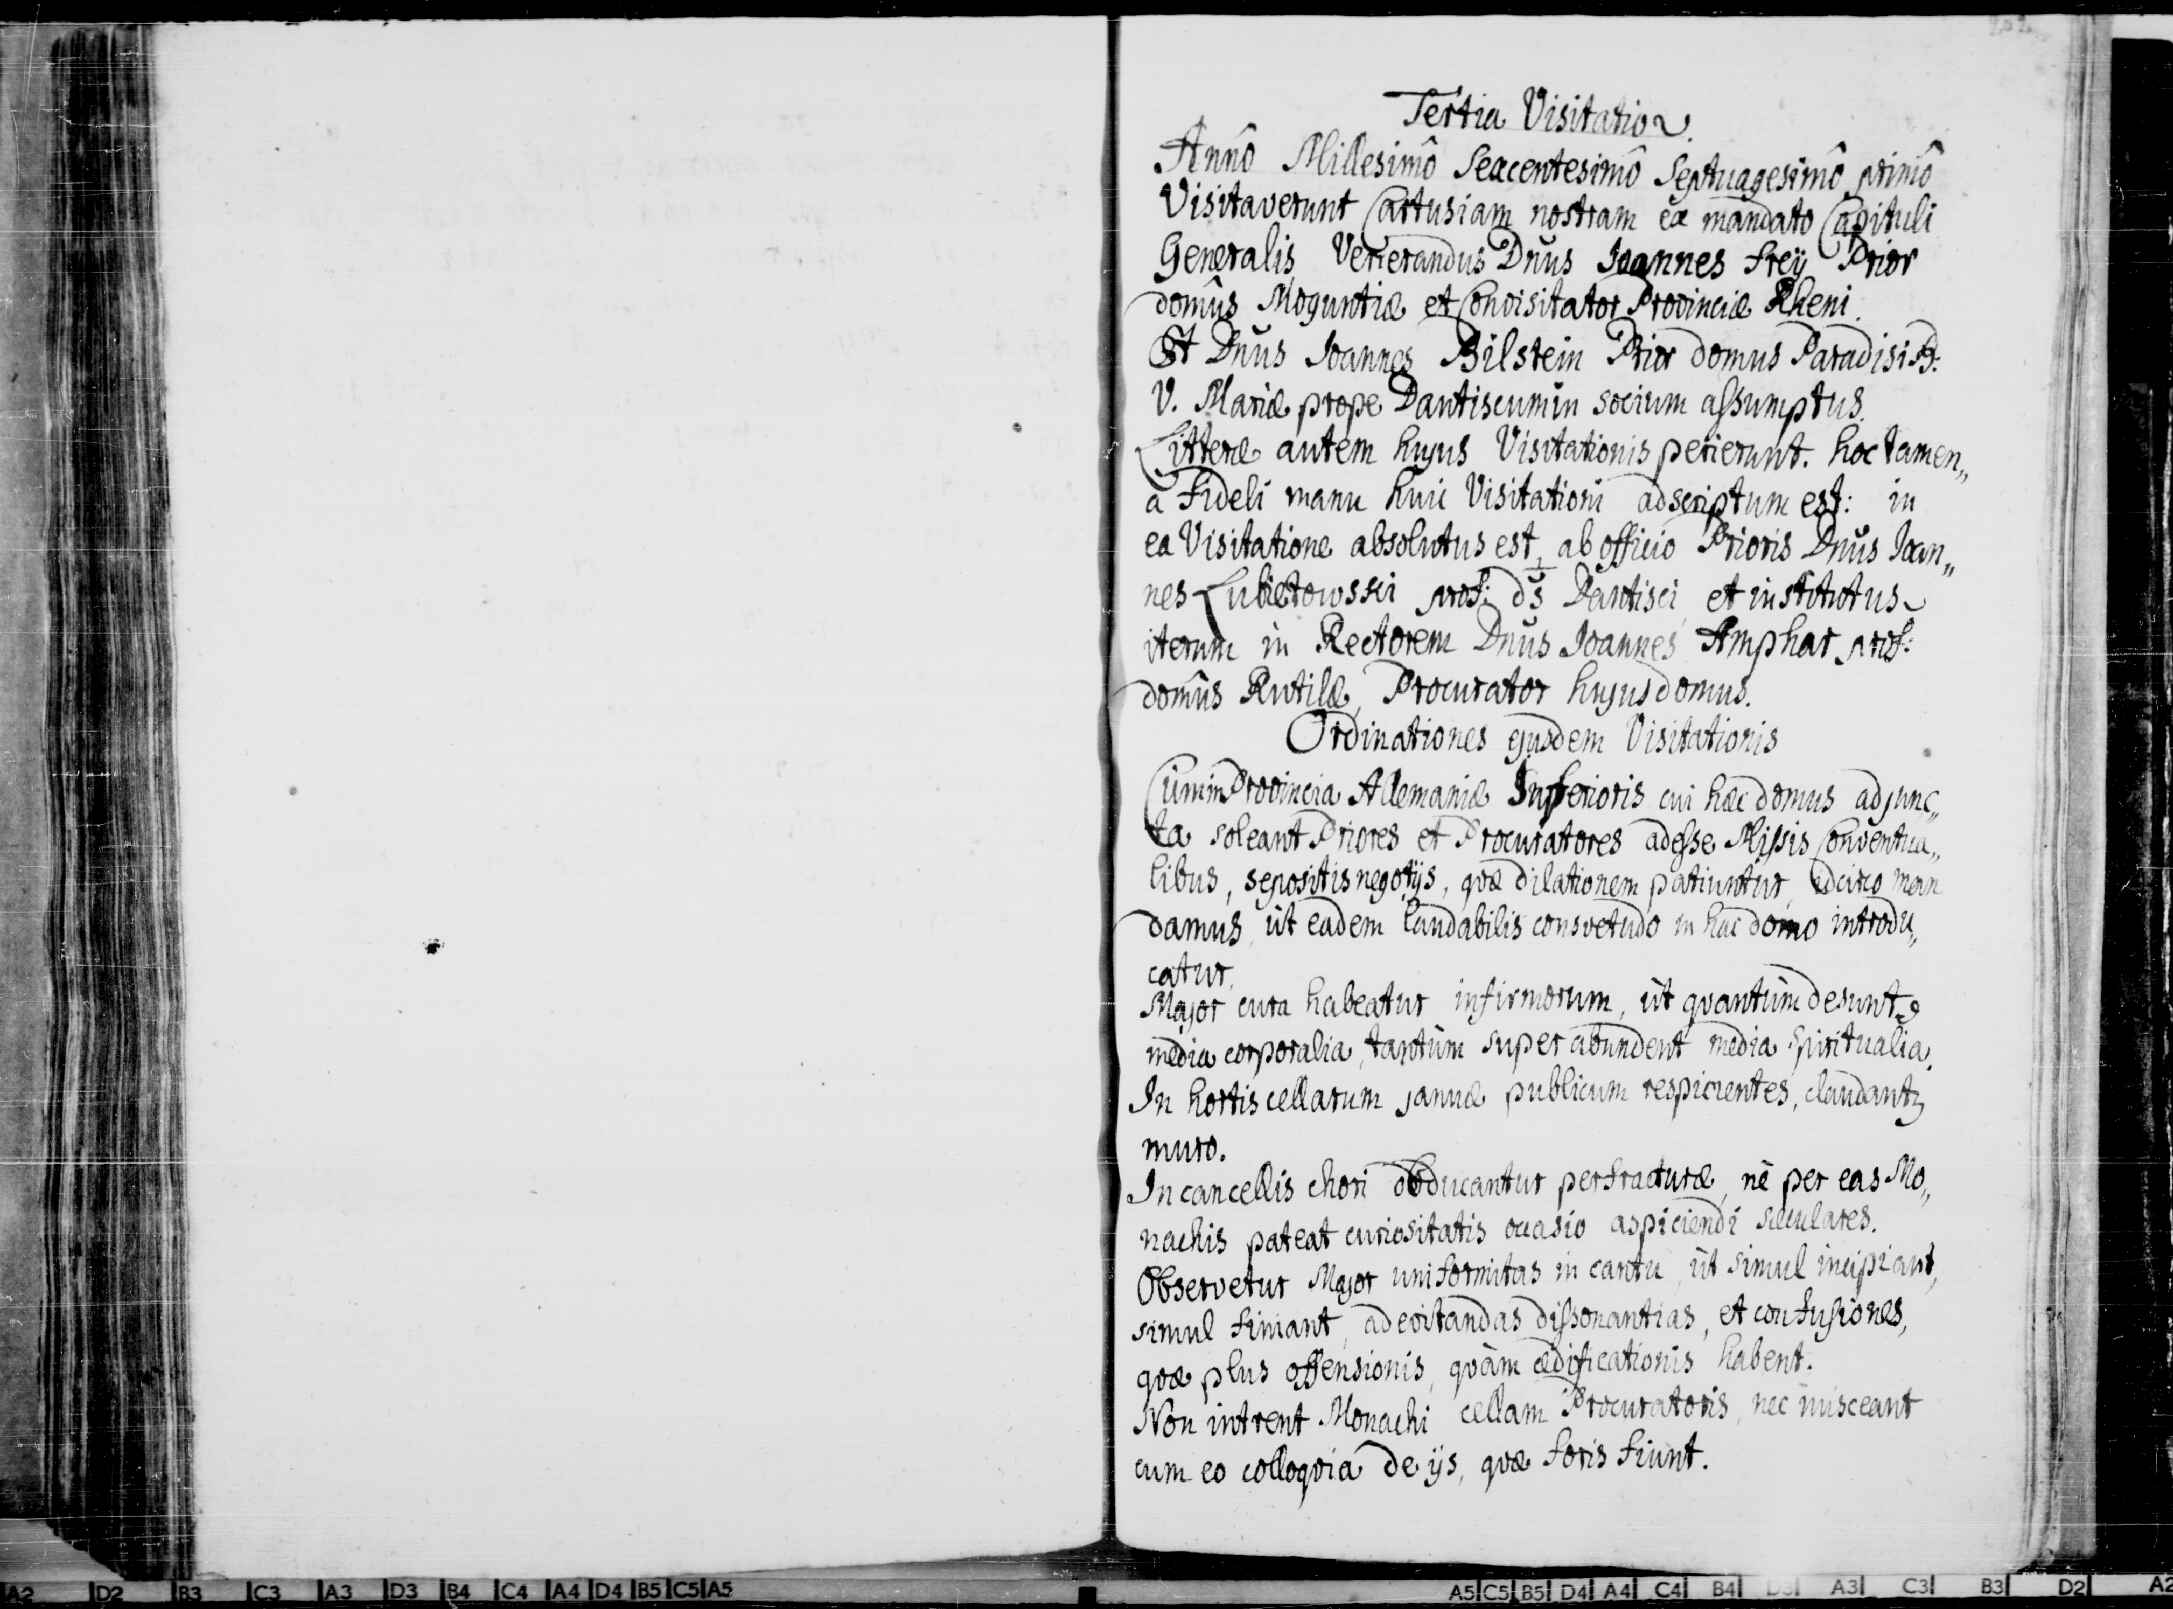 Tertia Visitatio.
Annô Millesimô Sexcentesimô Septuagesimô primô
Visitaverunt Cartusiam nostram ex mandato Capituli
Generalis Venerandus Dnus Joannes Frey Prior
domûs Moguntiæ et Convisitator Provinciæ Rheni.
Et Dnus Joannes Bilstein Prior domus Paradisi B:
V. Mariæ prope Dantiscum in socium assumptus.
Litteræ autem hujus Visitationis perierunt. hoc tamen„
a fideli manu huic Visitationi adscriptum est: in
ea Visitatione absolutus est ab officio Prioris Dnus Joan„
nes Lubietowski prof: ds Dantisci et institutus
iterum in Rectorem Dnus Joannes Amphar prof:
domûs Rutilæ, Procurator hujus domus.
Ordinationes ejusdem Visitationis
Cum in Provincia Allemaniæ Inferioris cui hæc domus adjunc„
ta soleant Priores et Procuratores adesse Missis Conventua„
libus, sepositis negotijs, quæ dilationem patiuntur, idcirco man
damus, ut eadem laudabilis consvetudo in hac domo introdu„
catur.
Major cura habeatur infirmorum, ut quantùm desunt
media corporalia, tantùm superabundent media spiritualia.
In hortis cellarum januæ publicum respicientes, claudantz
muro.
In cancellis chori obducantur perfracturæ, nè per eas Mo„
nachis pateat curiositatis occasio aspiciendi sæculares.
Observetur Major uniformitas in cantu, ut simul incipiant,
simul finiant, ad evitandas dissonantias, et confusiones,
quæ plus offensionis, quàm ædificationis habent.
Non intrent Monachi cellam Procuratoris, nec misceant
cum eo colloqvia de ijs, quæ foris fiunt.
A2 D2 B3 C3 A3 D3 B4 C4 A4 D4 B5 C5 A5
A5 C5 B5 D4 A4 C4 B4 D3 A3 C3 B3 D2 A2